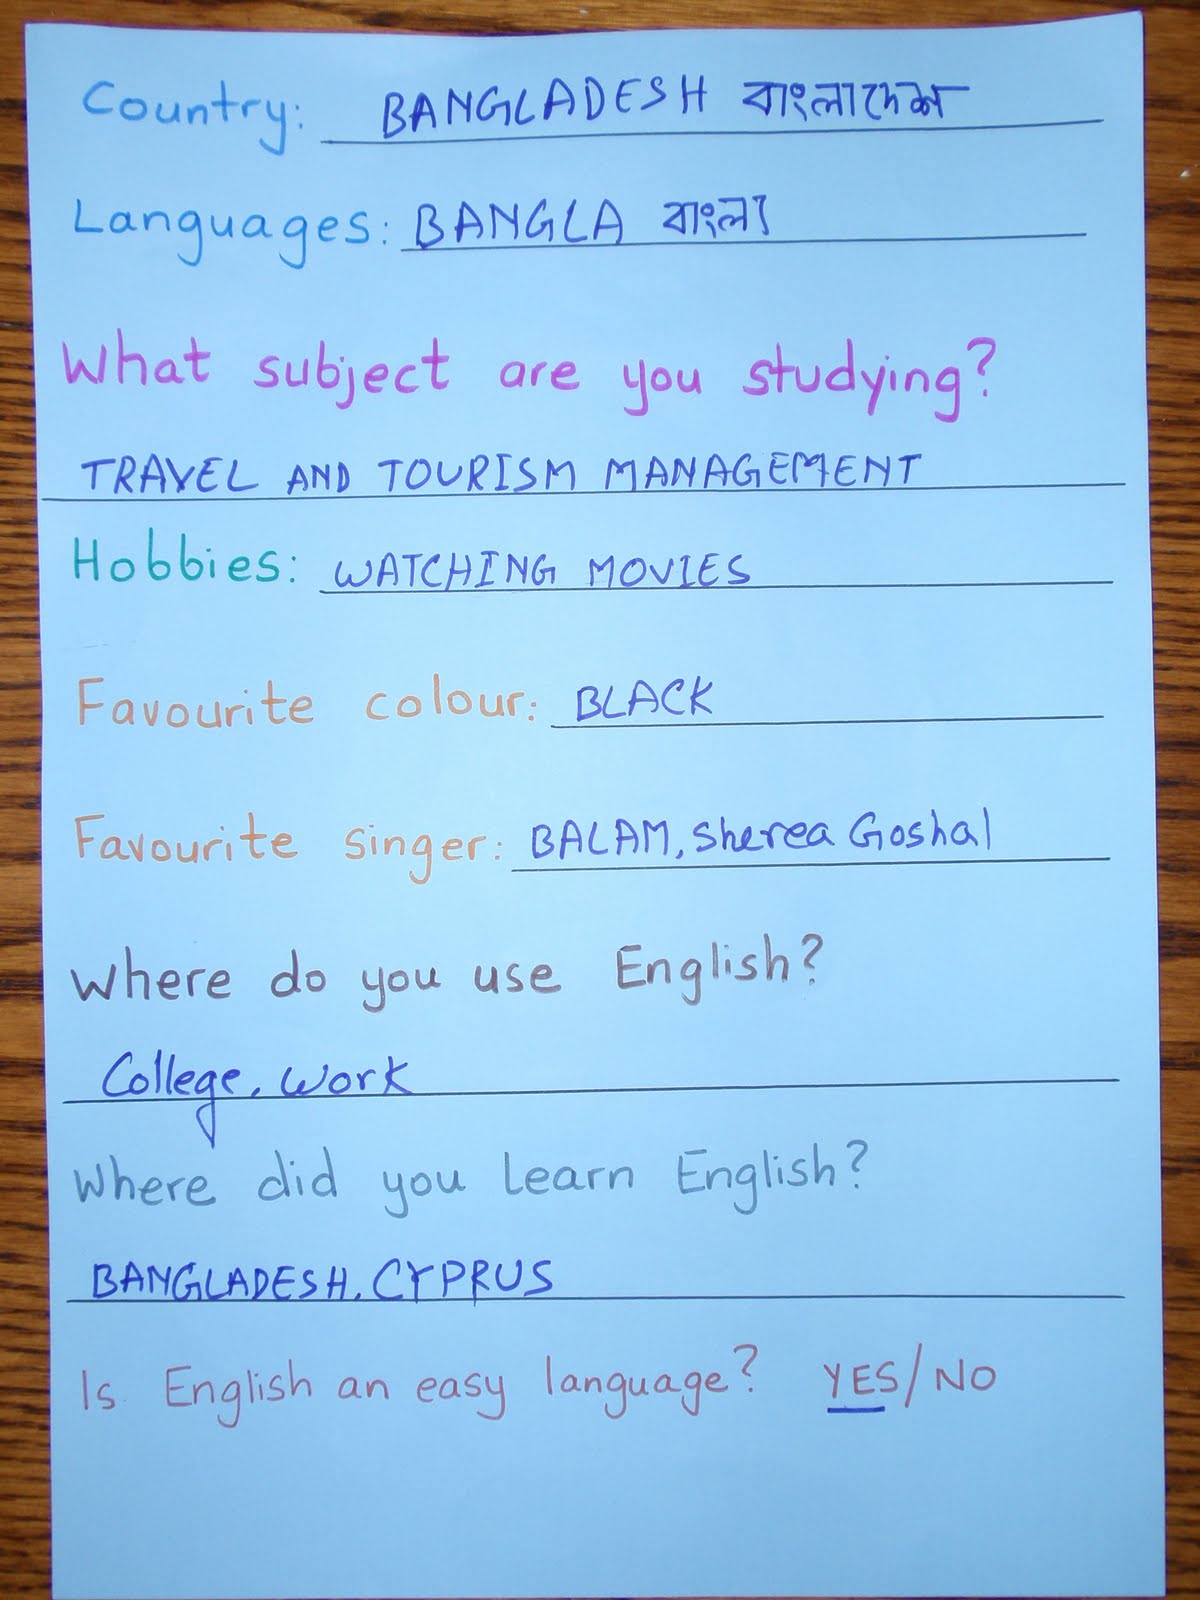 Country: BANGLADESH বাংলাদেশ
Languages: BANGLA বাংলা
What subject are you studying?
TRAVEL AND TOURISM MANAGEMENT
Hobbies: WATCHING MOVIES
Favourite colour: BLACK
Favourite singer: BALAM, Sherea Goshal
Where do you use English?
College, Work
Where did you learn English?
BANGLADESH, CYPRUS
Is English an easy language? YES/NO